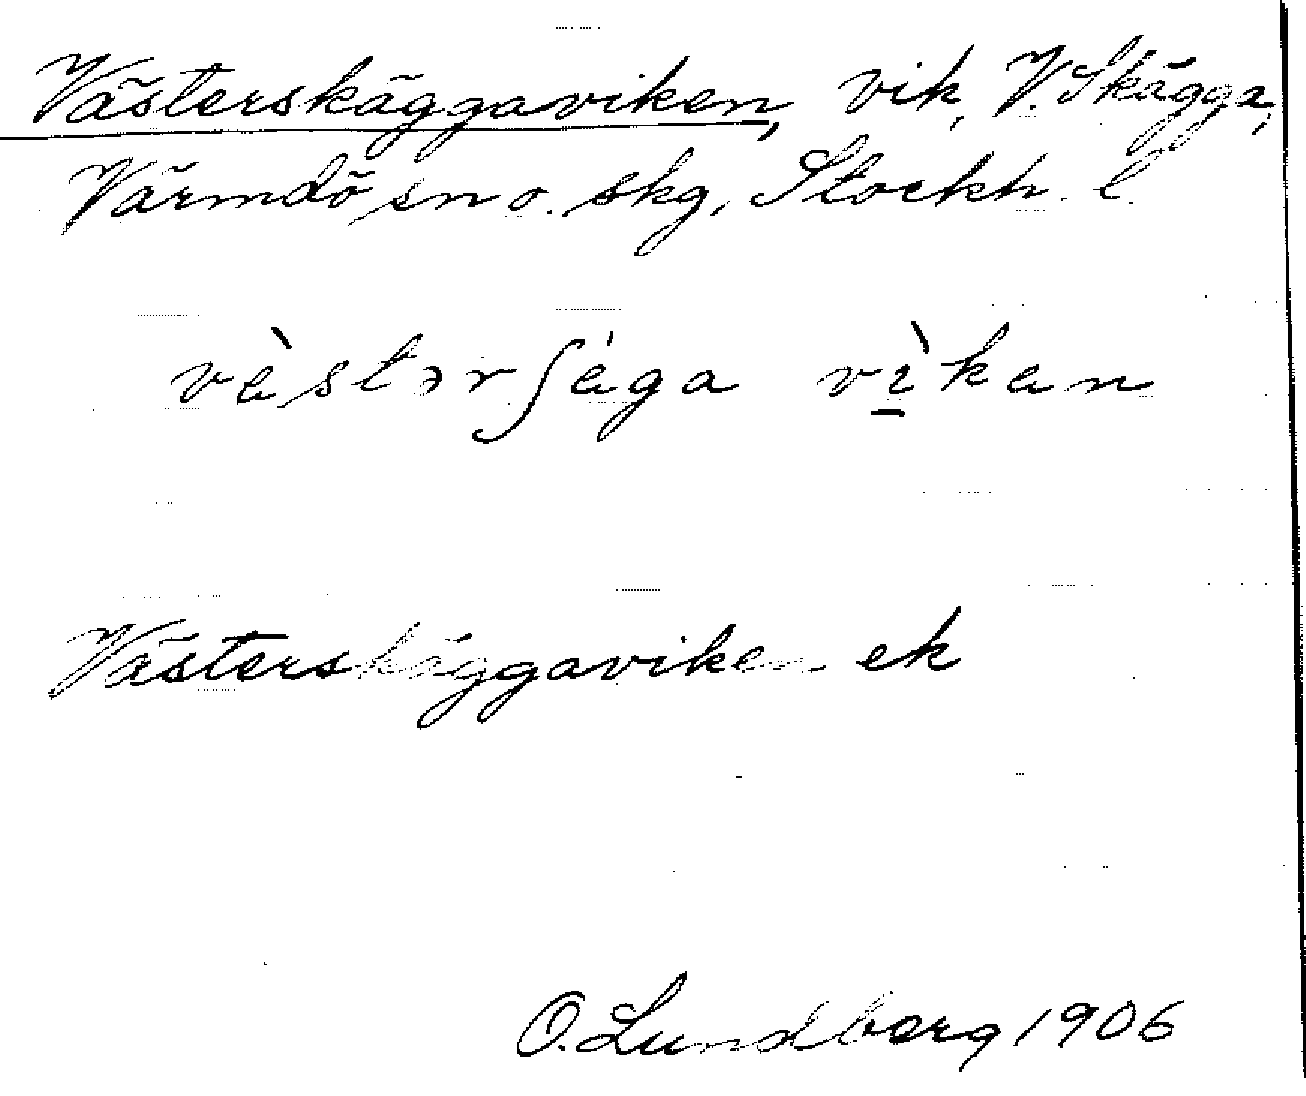 Västerskäggaviken, vik, V. Skägga,
Värmdö sn o. skg, Stockh. l.
vèstərʃéga vìken
Västerskäggaviken ek
O. Lundberg 1906